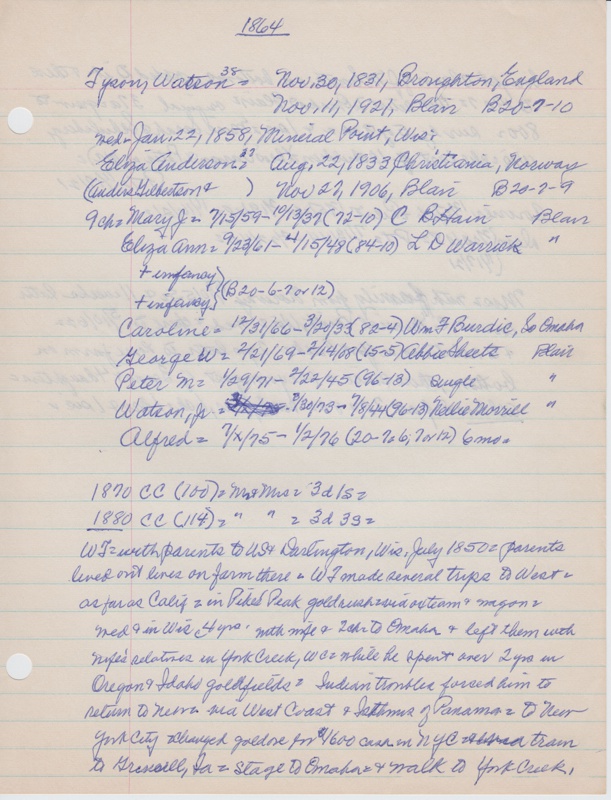 1864
Tyson, Watson 38 = Nov. 30, 1831, Broughton, England
Nov. 11, 1921, Blair B20-7-10
med = Jan. 22, 1858, Mineral Point, Wis.
Eliza Anderson 33 = Aug. 22, 1833 Christiania, Norway
(Anders Gilbertson & ) Nov 27, 1906, Blair B20-7-9
9 ch = Mary J = 7/15/59 - 10/13/37 (72-10) C B Hain Blair
Eliza Ann = 9/23/61 - 4/15/48 (84-10) L D Warrick "
+ infancy
+ infancy } (B20-6-7 or 12)
Caroline = 12/31/66 - 3/20/33 (82-4) Wm F Burdic, So Omaha
George W = 2/21/69 - 2/14/08 (15-5) Abbie Sheets Blair
Peter M = 1/29/71 - 2/22/45 (96-13) single "
Watson, Jr = 3/30/73 - 7/8/44 (96-13) Nellie Morrill "
Alfred = 7/x/75 - 1/2/76 (20-7 = 6, 7 or 12) 6 mo =
1870 CC (100) = Mr & Mrs = 3d 1s =
1880 CC (114) = " " = 3d 3s =
WT = with parents to US & Darlington, Wis, July 1850 = parents
lived out lives on farm there = WT made several trips to West =
as far as Calif = in Pikes Peak goldrush = via oxteam & wagon =
med & in Wis 4 yrs. with wife & 2 ch to Omaha & left them with
wife's relatives in York Creek, WC = while he spent over 2 yrs in
Oregon & Idaho goldfields = Indian troubles forced him to
return to via West Coast & Isthmus of Panama = to New
York City = changed gold ore for $1600 cash in NYC = train
to Grinnell, Ia = stage to Omaha = & walk to York Creek,